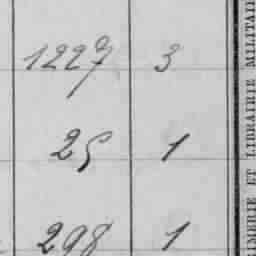 1227 3
25 1
298 1
IMERIE ET LIBRAIRIE MILITAI